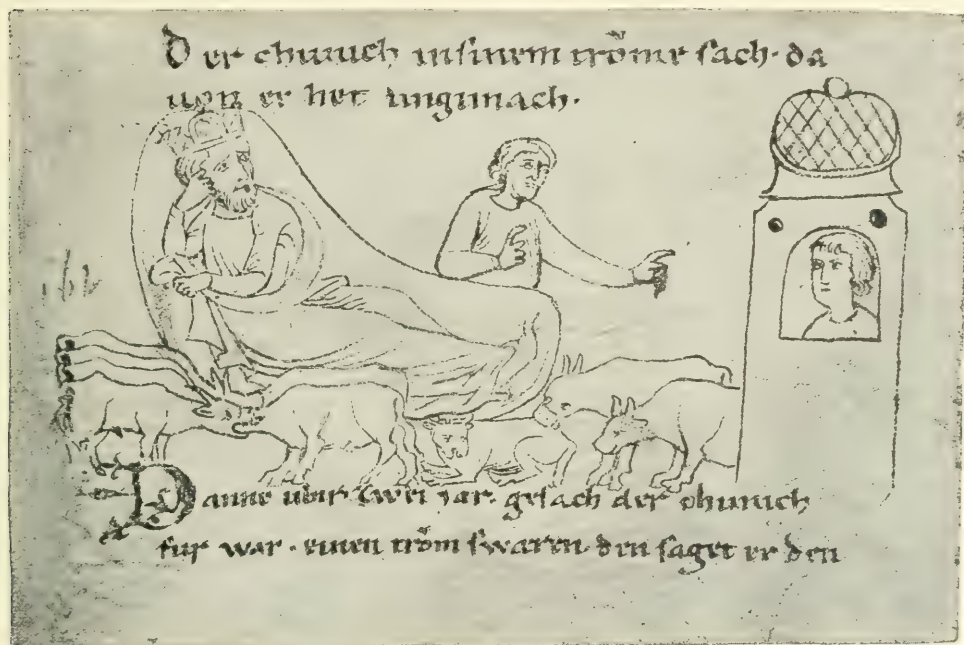 Der chunich in sinem trŏme sach · da
uon er het ungimach ·
Danne uber zwei iar · gesach der chunich
fur war · einen trŏm swaren · den saget er den